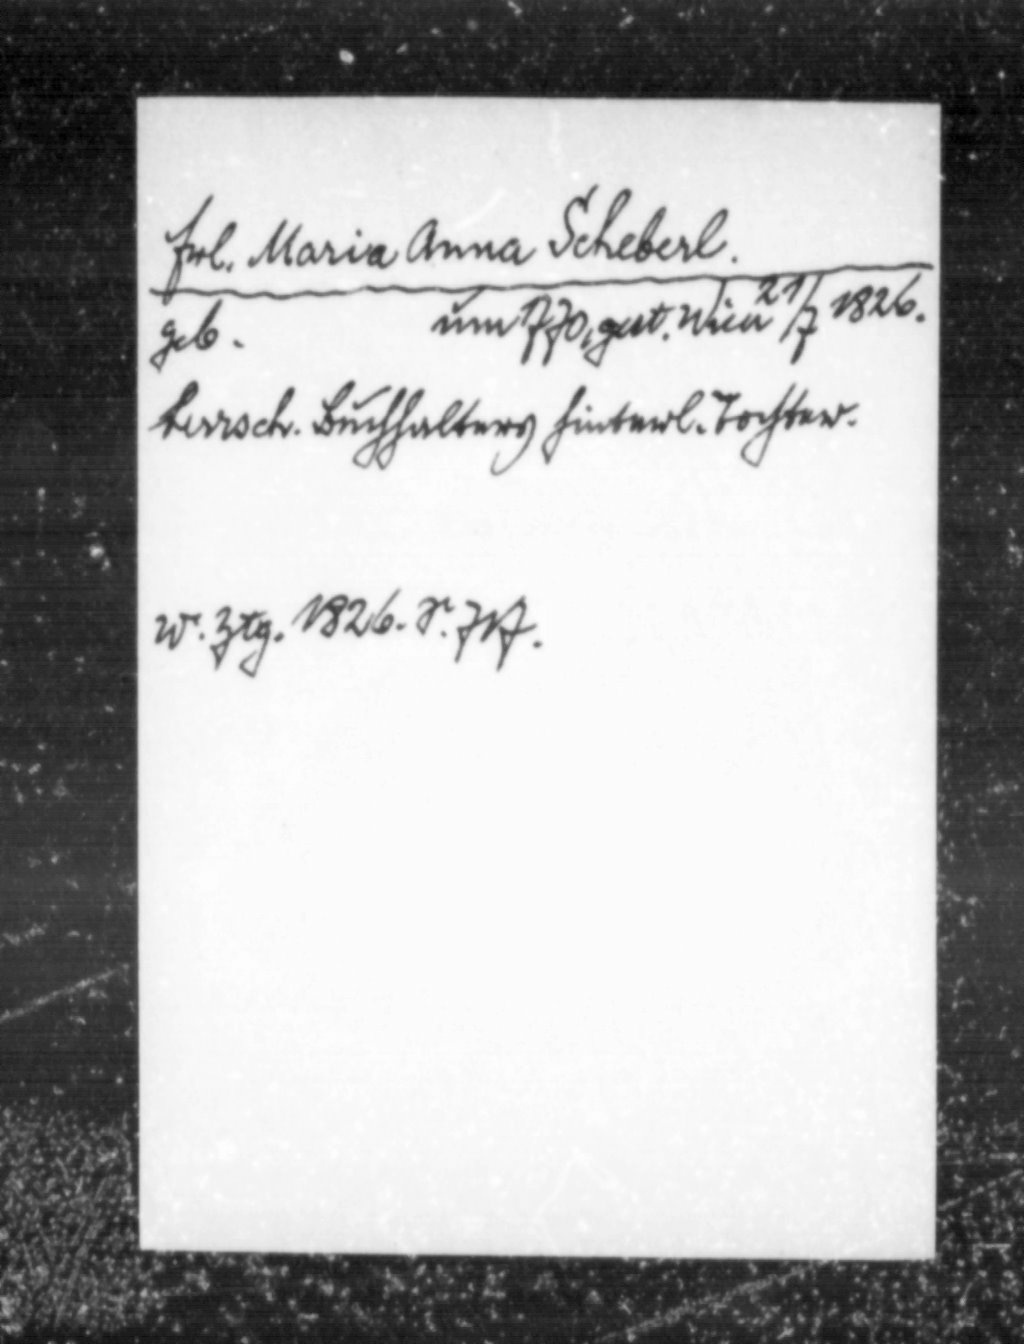 Frl. Maria Anna Scheberl.
geb. um 1770, gest. Wien 21/7 1826.
herrsch. Buchhalters hinterl. Tochter.
W. Ztg. 1826. S. 717.